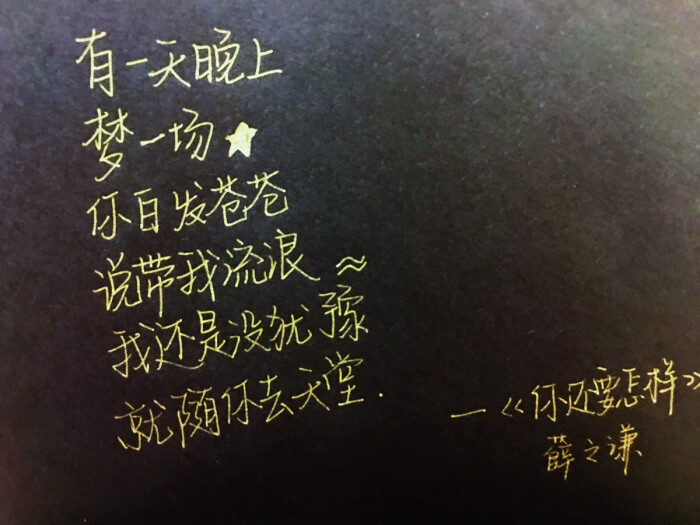 有一天晚上
梦一场
你白发苍苍
说带我流浪~
我还是没犹豫
就随你去天堂.
—《你还要怎样》
薛之谦